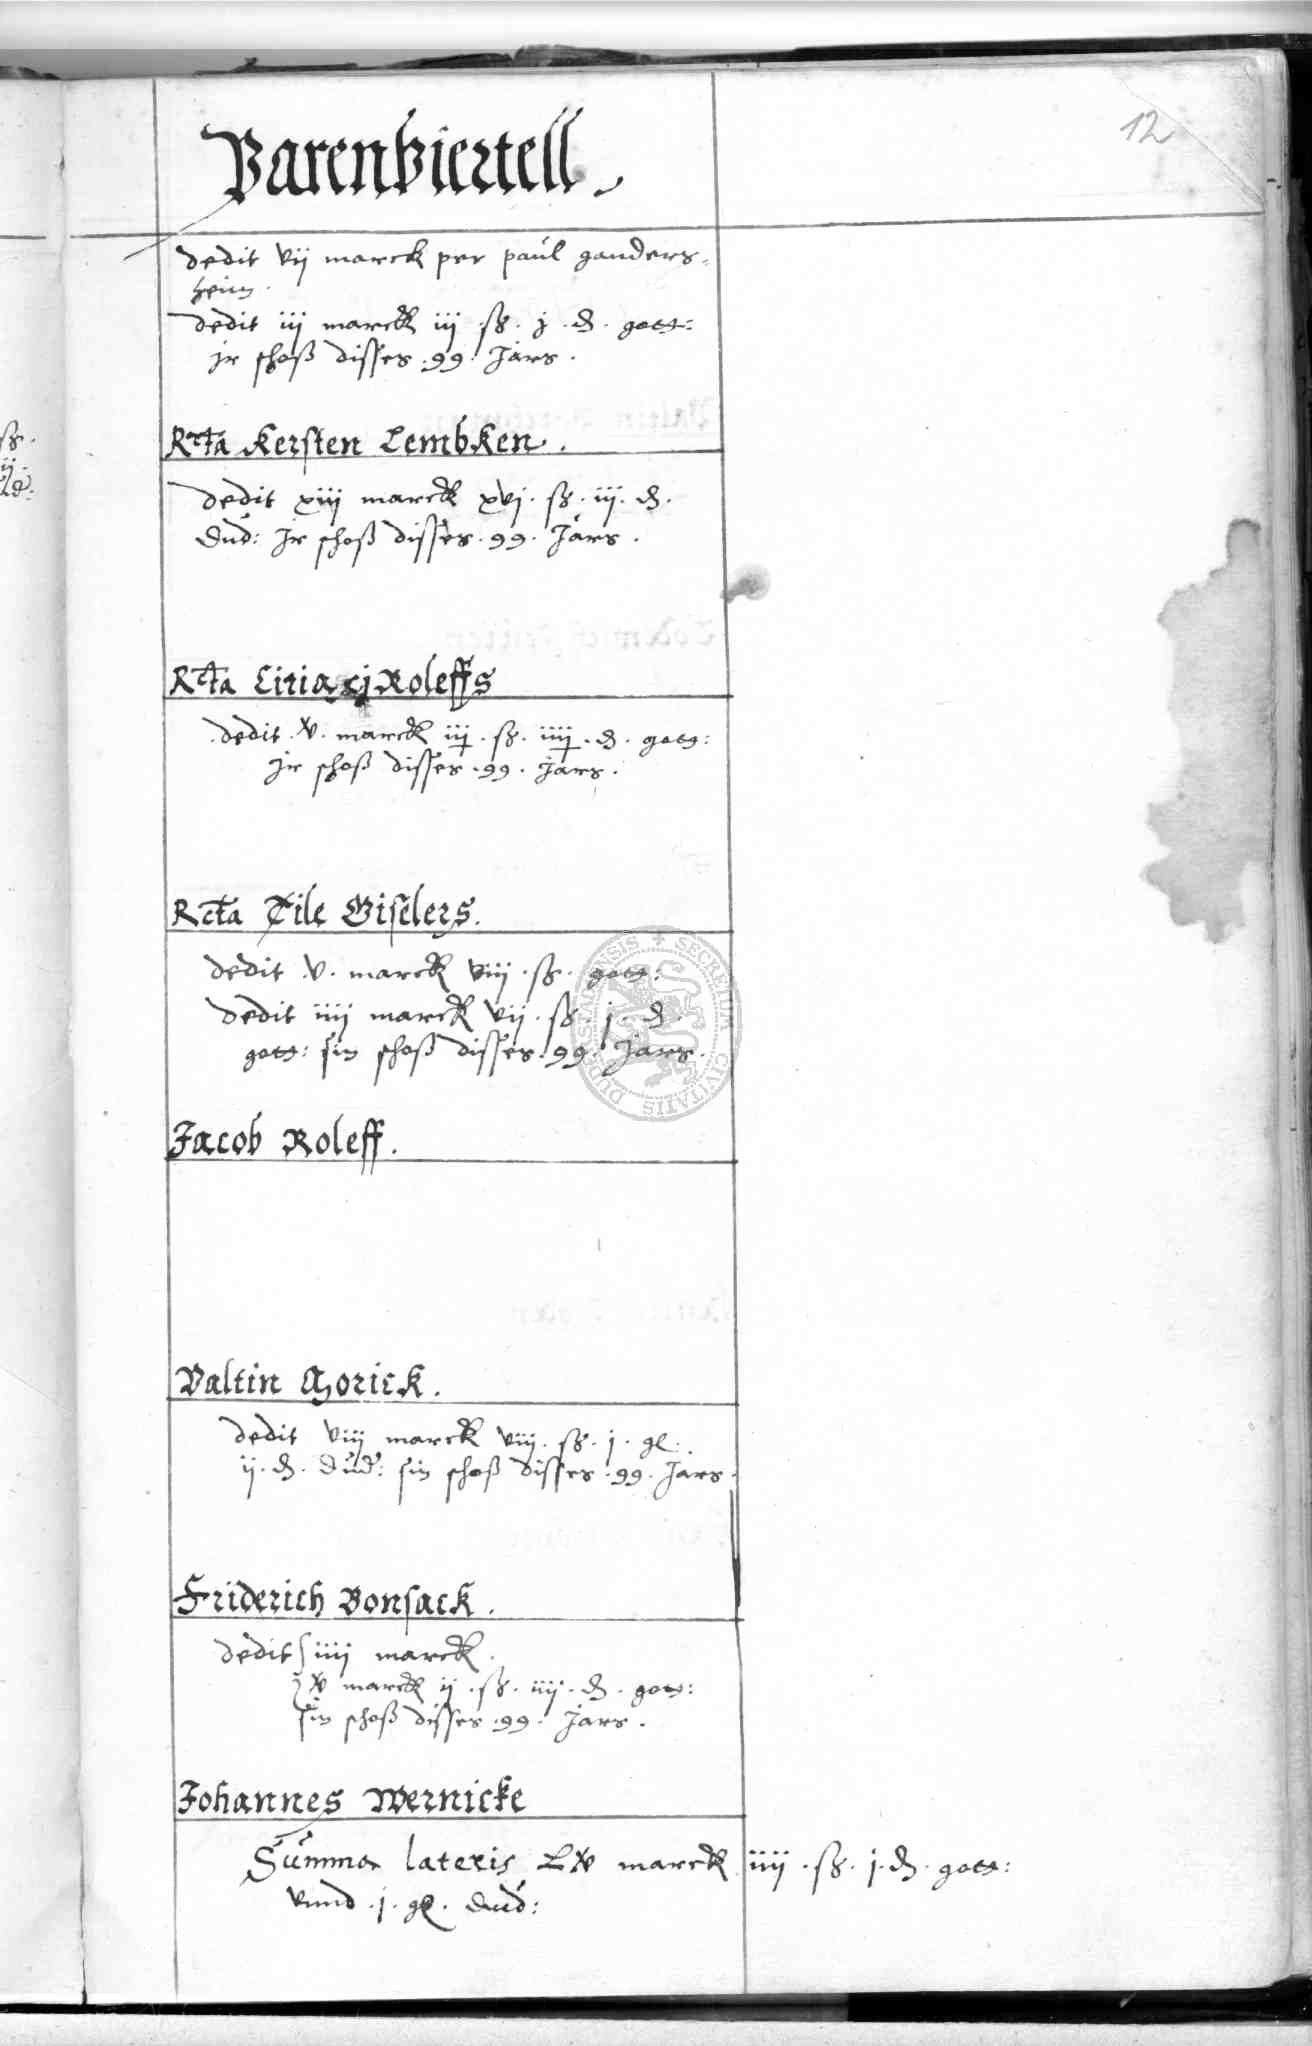 12
Barenviertell.
dedit vij marck per paul ganders-
heim.
dedit iij marck iij ß. j. d. gott:
jr schoß disses .99. Jars.
Rcta Kersten Lembken.
dedit xiij marck xvj. ß. iij. d.
Dud: Jr schoß disses .99. Jars.
Rcta Ciriacj Roleffs
dedit .v. marck iij. ß. iiij. d. gott:
Jr schoß disses .99. Jars.
Rcta Tile Giselers.
dedit .v. marck viij .ß. gott:
dedit iiij marck vij. ß. j. d.
gott: sin schoß disses .99. Jars.
DUDERSTADENSIS + SECRETUM CIVITATIS
Jacob Roleff.
Valtin Gorick.
dedit viij marck viij. ß. j. gl.
ij. d. Dud: sin schoß disses .99. Jars.
Friderich Bonsack.
dedit iiij marck.
v marck ij .ß. iiij. d. gott:
sin schoß disses .99. Jars.
Johannes Wernicke
Summa lateris Lv marck iiij .ß. j. d. gott:
vnnd .j. gl. Dud: